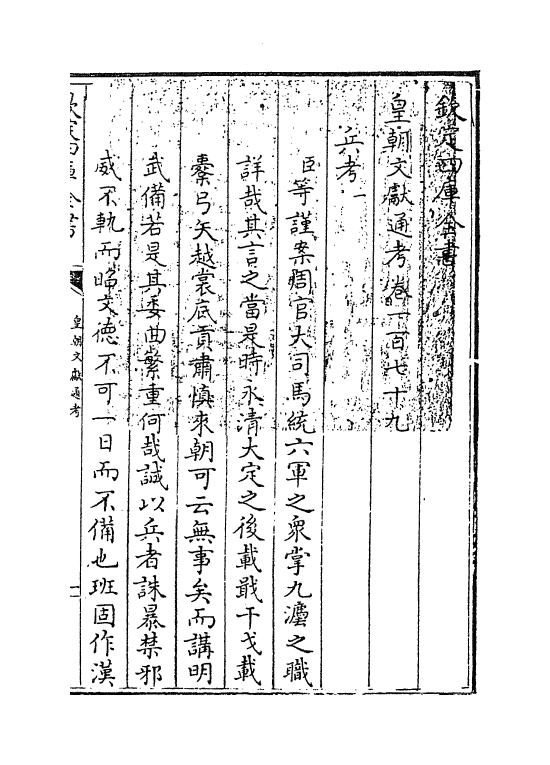 欽定四庫全書
皇朝文獻通考卷一百七十九
兵考一
臣等謹案周官大司馬統六軍之衆掌九灋之職
詳哉其言之當是時永清大定之後載戢干戈載
櫜弓矢越裳底貢肅慎來朝可云無事矣而講明
武備若是其委曲繁重何哉誠以兵者誅暴禁邪
威不軌而昭文德不可一日而不備也班固作漢
欽定四庫全書
皇朝文獻通考
一